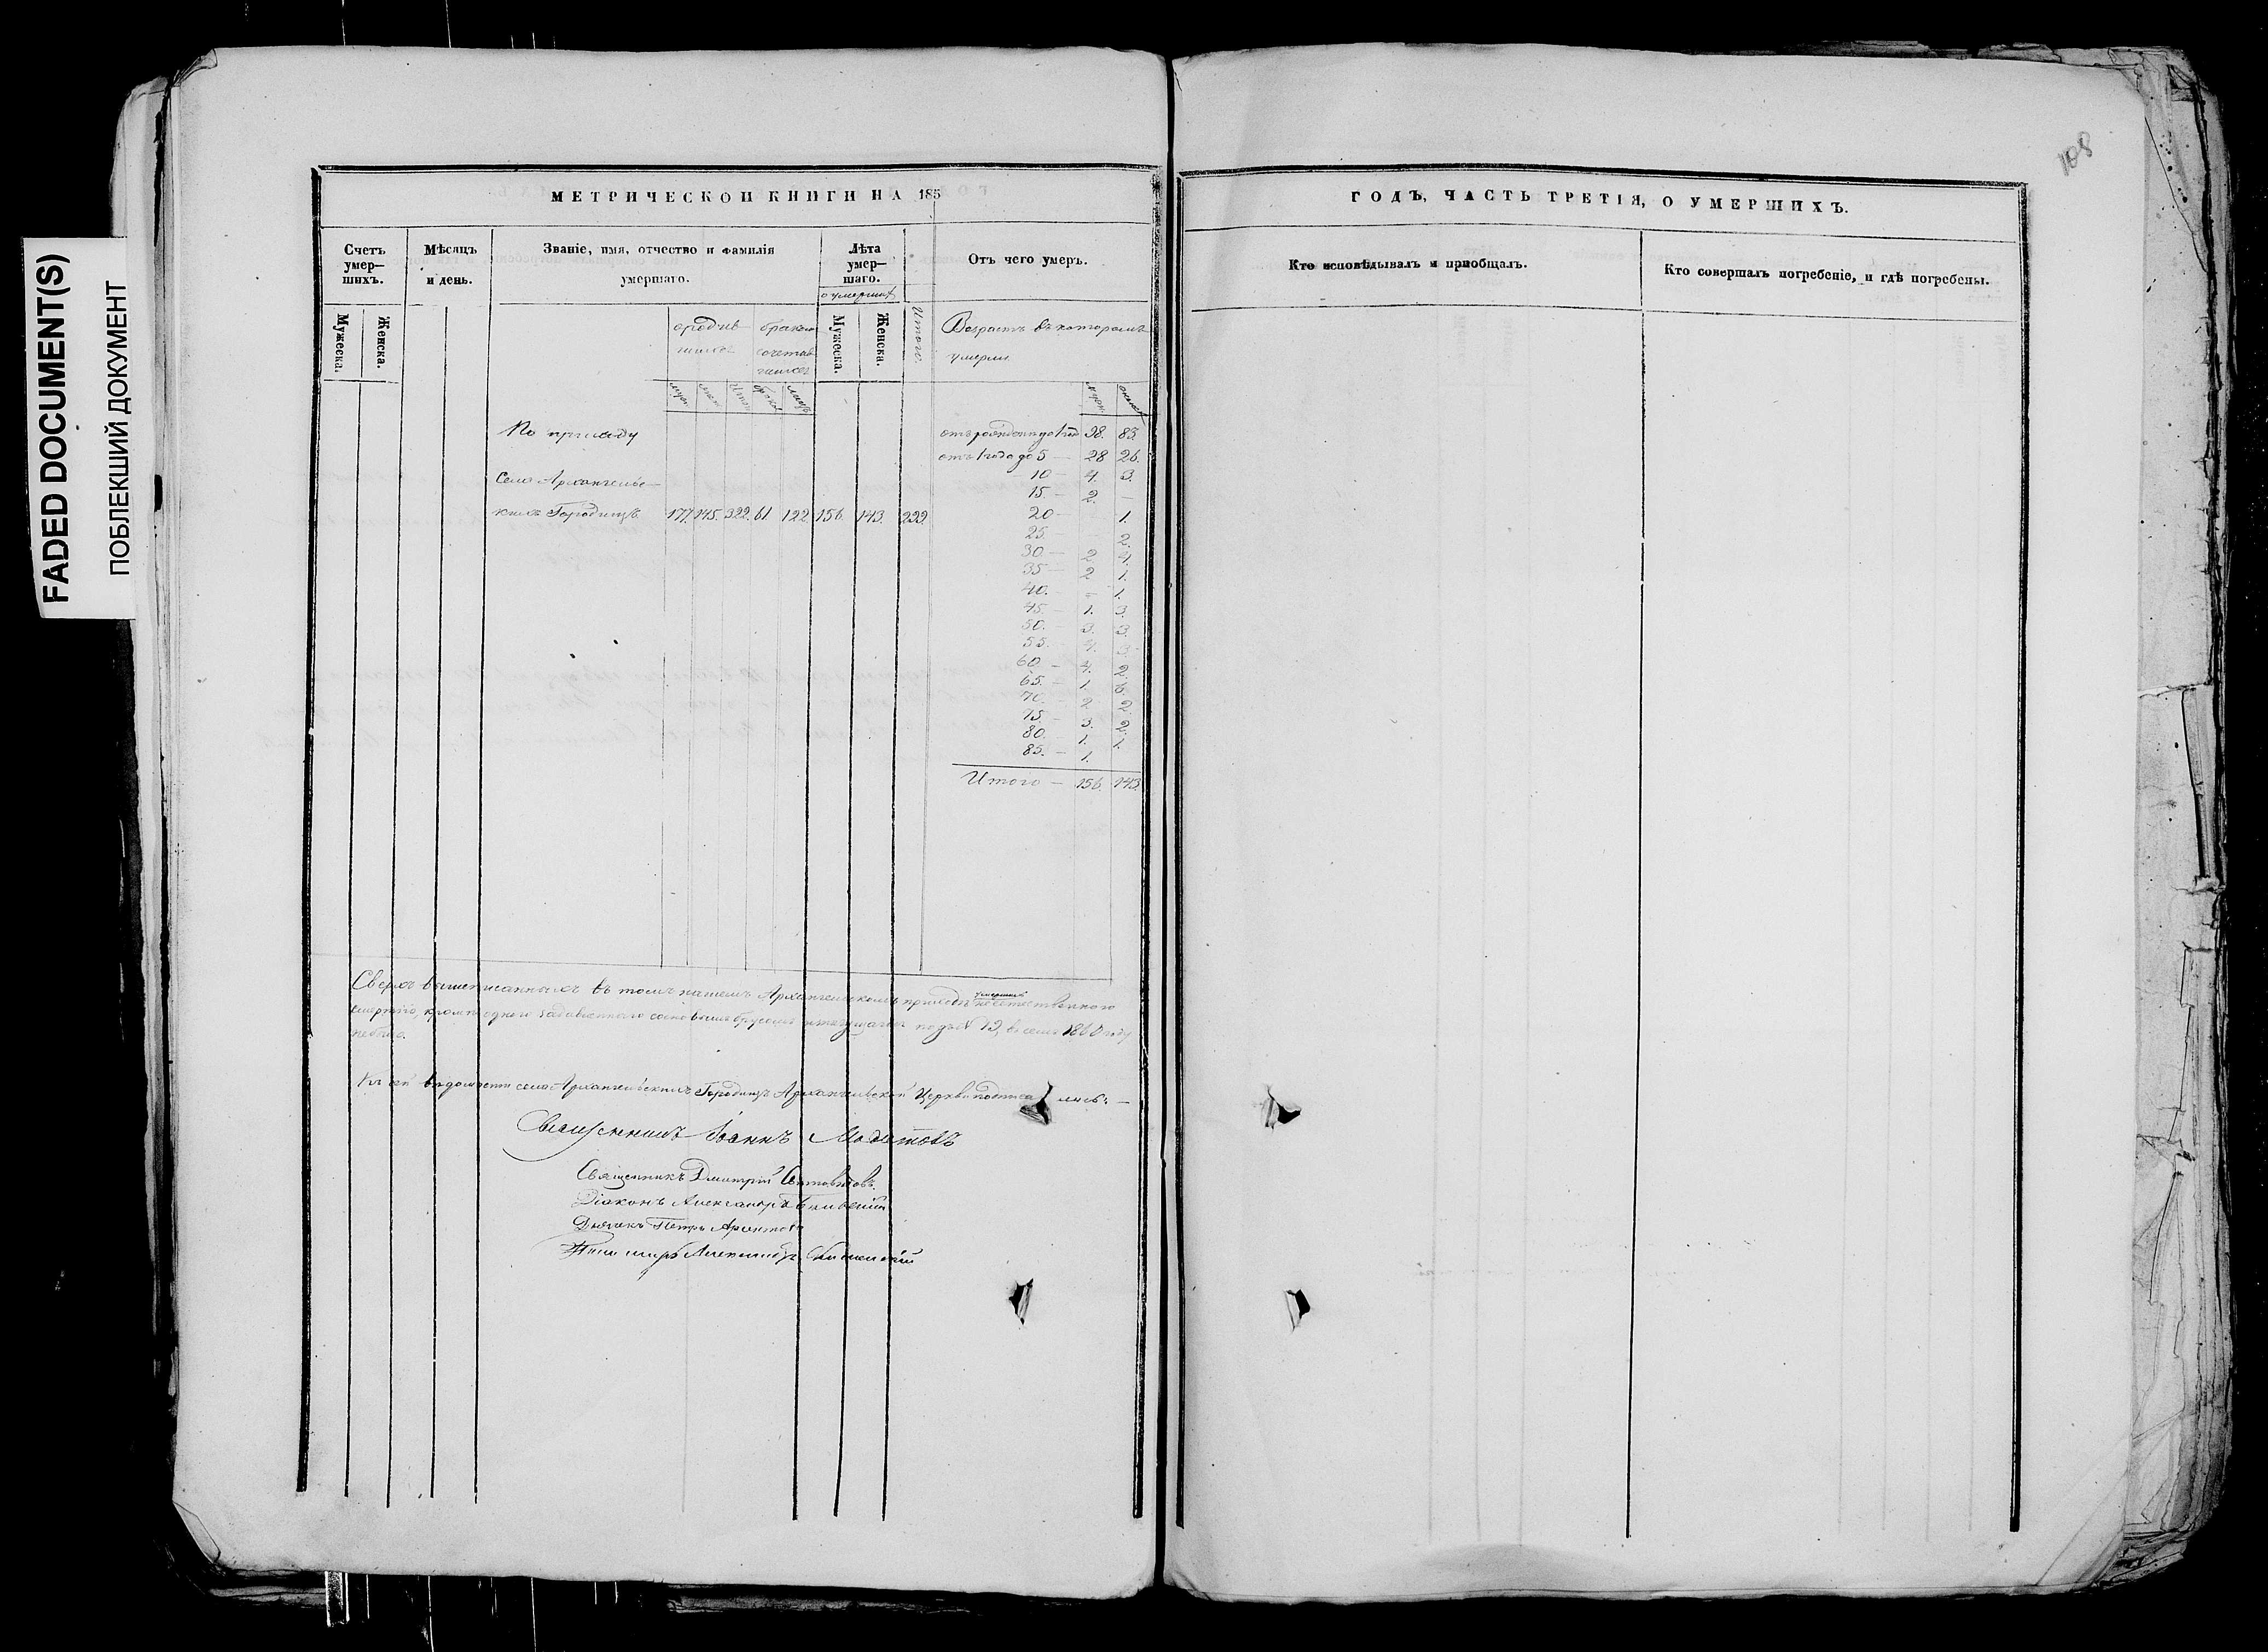 FADED DOCUMENT(S)
ПОБЛЕКШИЙ ДОКУМЕНТ
108
МЕТРИЧЕСКОЙ КНИГИ НА 185
Счетъ умер— шихъ.
Мѣсяцъ и день.
Званіе, имя, отчество и фамилія умершаго.
Лѣта умер— шаго.
Отъ чего умеръ.
о умершихъ
Мужеска.
Женска.
родив
шихся
бракомъ
сочетав
шихся
Мужеска.
Женска.
Итого.
Возрастъ въ которомъ
умерли.
По приходу
отъ рожденія до 1 год 98. 85.
отъ 1 года до 5 — 28 26.
Села Архангельс—
10 — 4. 3.
15. — 2. —
кихъ Городищъ 177. 145. 322. 61. 122 156. 143. 299.
20 — 1.
25. — 2.
30. — 2 4.
35 — 2 1.
40. — 1.
45. — 1. 3.
50. — 3. 3.
55. 4. 3.
60. — 4. 2.
65. — 1.
70. — 2 2.
75. — 3. 2.
80. 1. 1.
85. — 1.
Итого — 156. 143.
умершихъ
Сверхъ вышеписанныхъ въ томъ нашемъ Архангельскомъ приходѣ неестественною
смертію, кромѣ одного задавленнаго сосновымъ брусомъ подъ № 13, въ семъ 1860 году
небыло.
Къ сей вѣдомости села Архангельскихъ Городищъ Архангельской Церкви подписались: —
Священникъ Іоаннъ
Священникъ Дмитрій
Діаконъ Александръ
Дьячекъ Петръ
Пономарь
ГОДЪ, ЧАСТЬ ТРЕТІЯ, О УМЕРШИХЪ.
Кто исповѣдывалъ и пріобщалъ.
Кто совершалъ погребеніе, и гдѣ погребены.